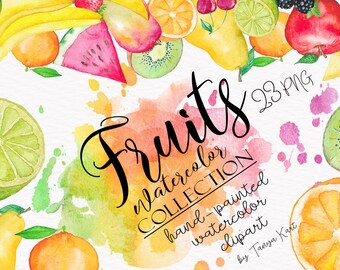 Fruits
23 PNG
Watercolor
COLLECTION
hand-painted
watercolor
clipart
by Tanya Kart